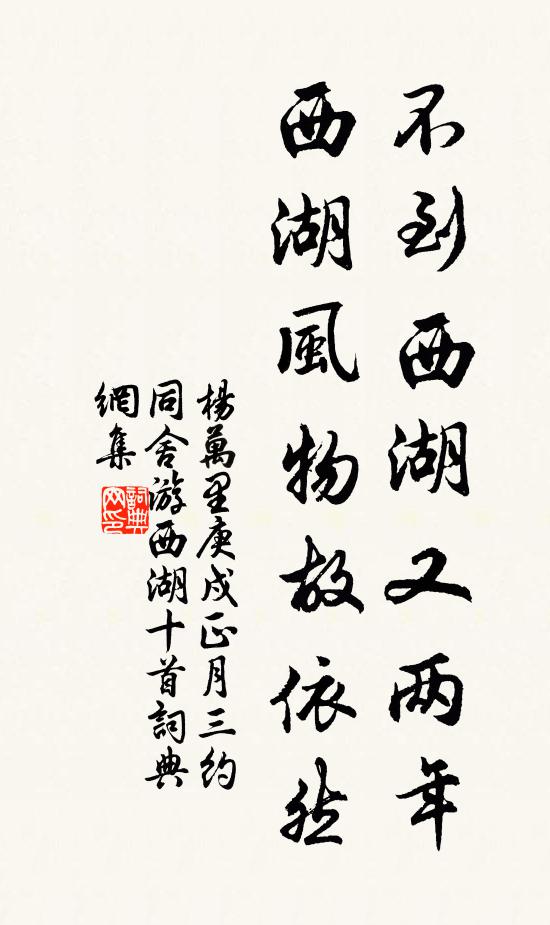 不到西湖又两年
西湖風物故依然
楊萬里庚戌正月三約
同舍游西湖十首詞典
網集
詞典
网印